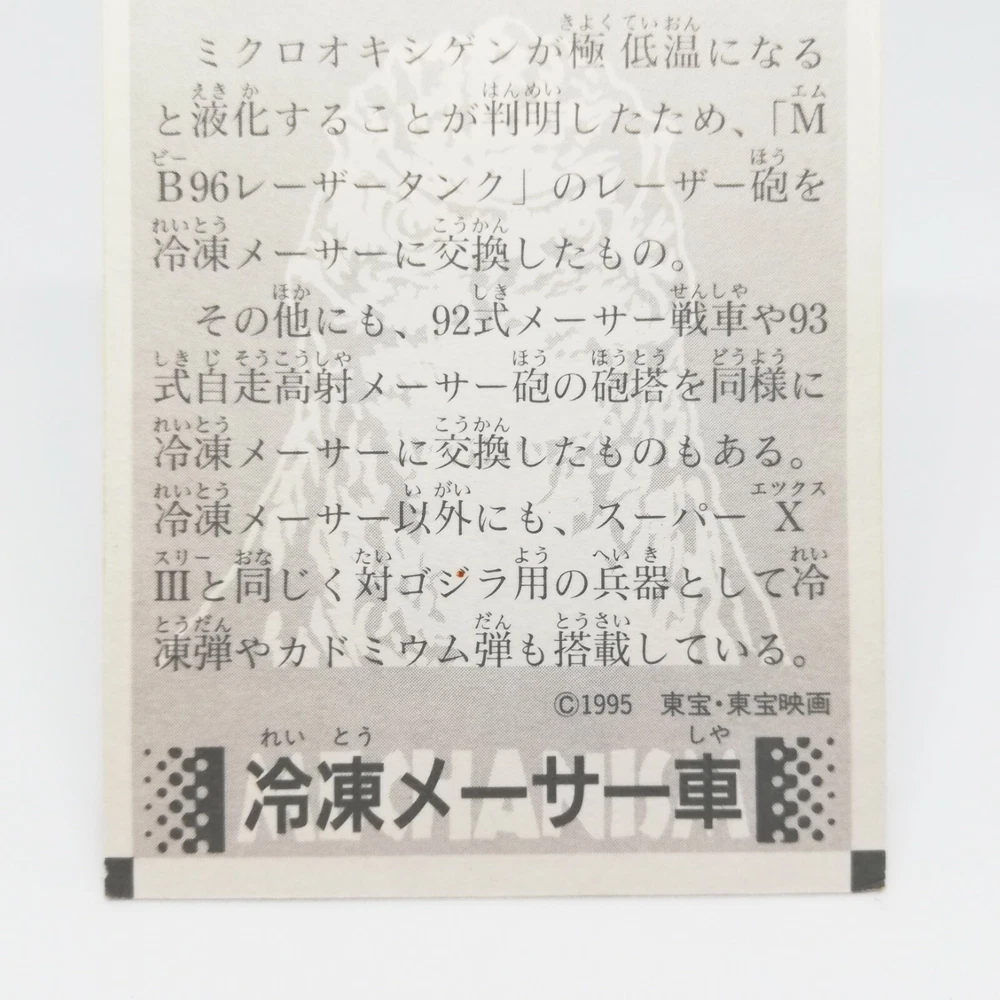 ミクロオキシゲンが極低温になる
と液化することが判明したため、「M
B96レーザータンク」のレーザー砲を
冷凍メーサーに交換したもの。
その他にも、92式メーサー戦車や93
式自走高射メーサー砲の砲塔を同様に
冷凍メーサーに交換したものもある。
冷凍メーサー以外にも、スーパーX
Ⅲと同じく対ゴジラ用の兵器として冷
凍弾やカドミウム弾も搭載している。
©1995 東宝・東宝映画
冷凍メーサー車